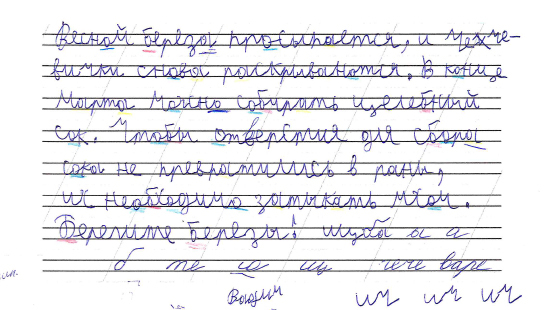 Весной берёза просыпается, и чече-
вички снова раскриваются. В конце
марта можно собирать целебный
сок. Чтобы отверстия для сбора
сока не превратились в раны,
их необходимо затыкать мхом.
Берегите берёзы! шуба а и
б те са щ чече варе
Вадим